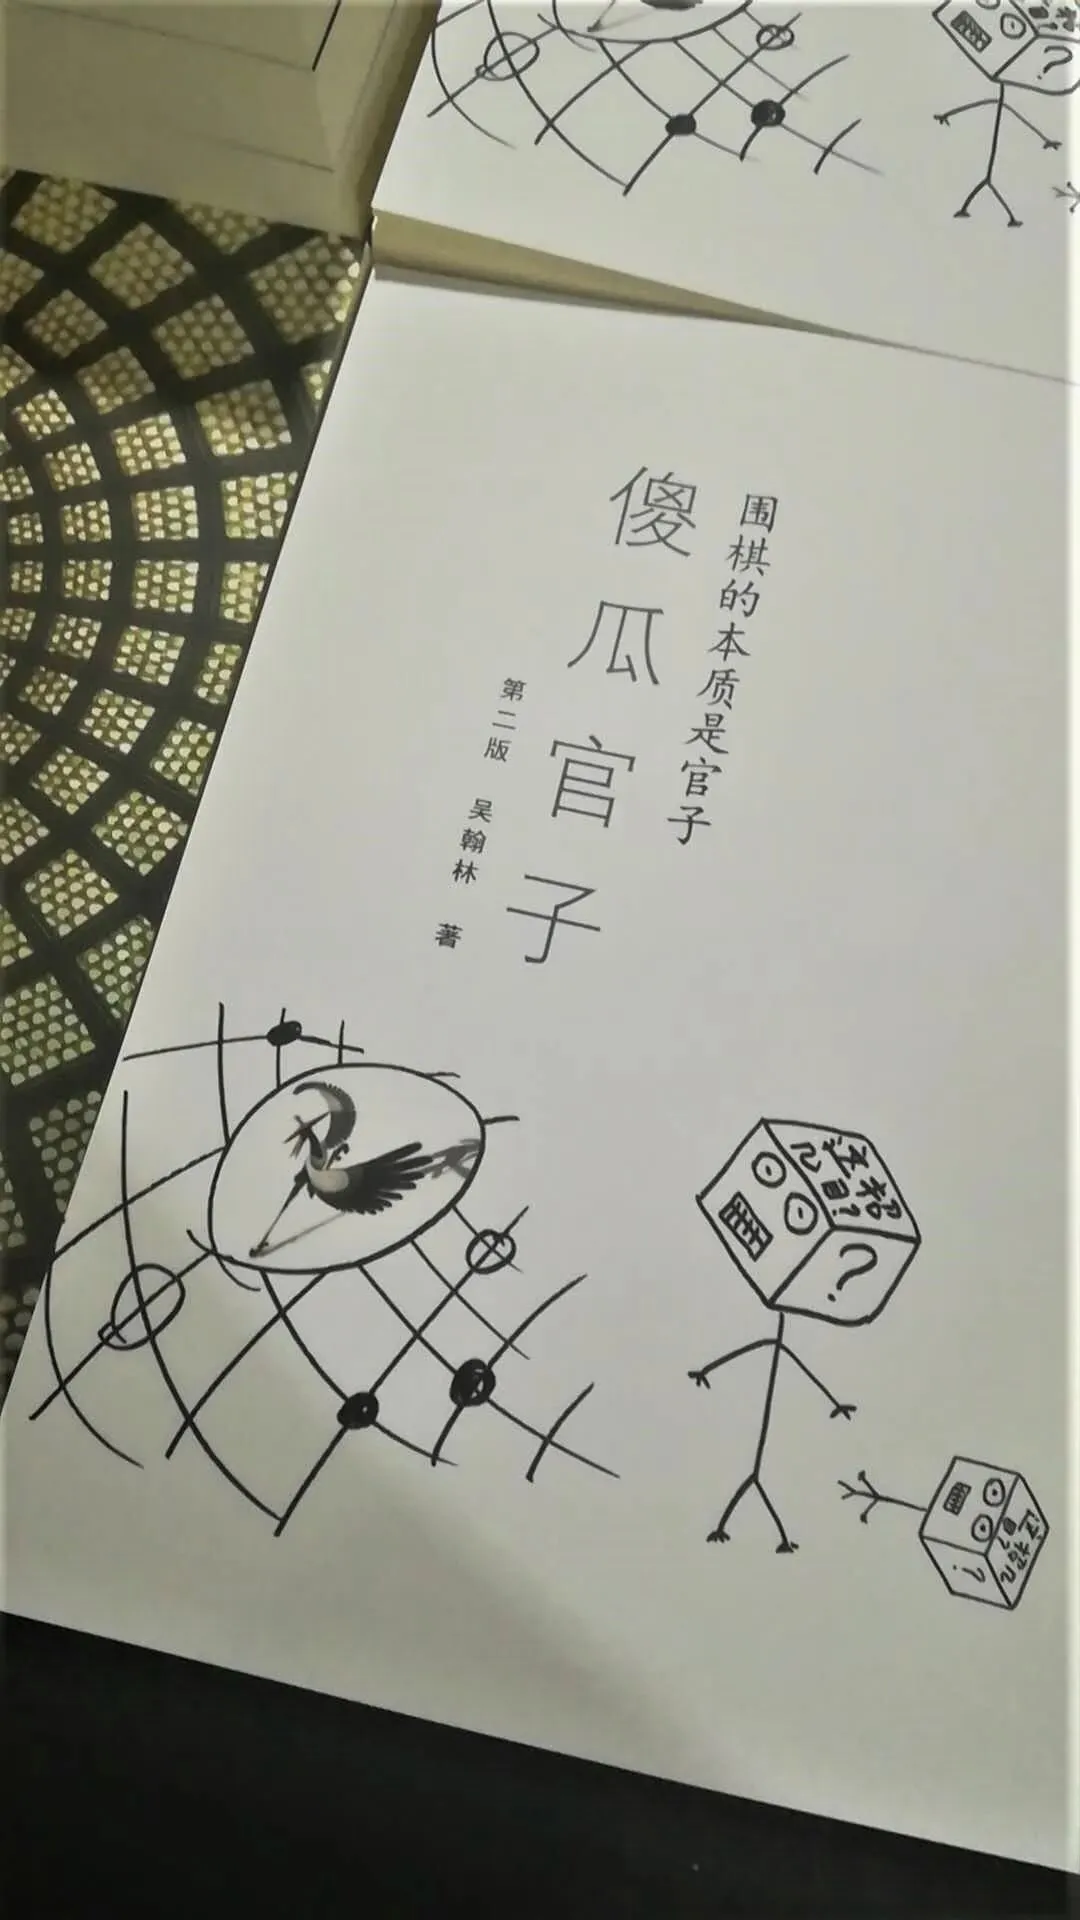 围棋的本质是官子
傻瓜官子
第二版 吴翰林 著
这招
几目?
?
这招几
目?
?